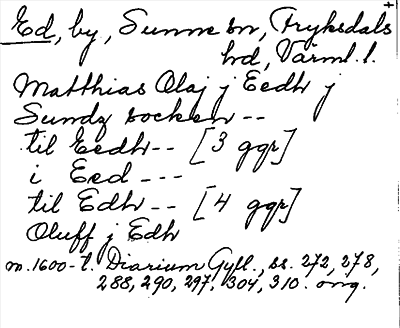 Ed, by, Sunne sn, Fryksdals
hd, Värml. l.
Matthias Olaj j Eedh j
Sundz socken --
til Eedh-- [3 ggr]
i Eed ---
til Edh-- [4 ggr]
Oluff j Edh
m. 1600-t. Diarium Gyll., ss. 272, 278,
288, 290, 297, 304, 310. orig.